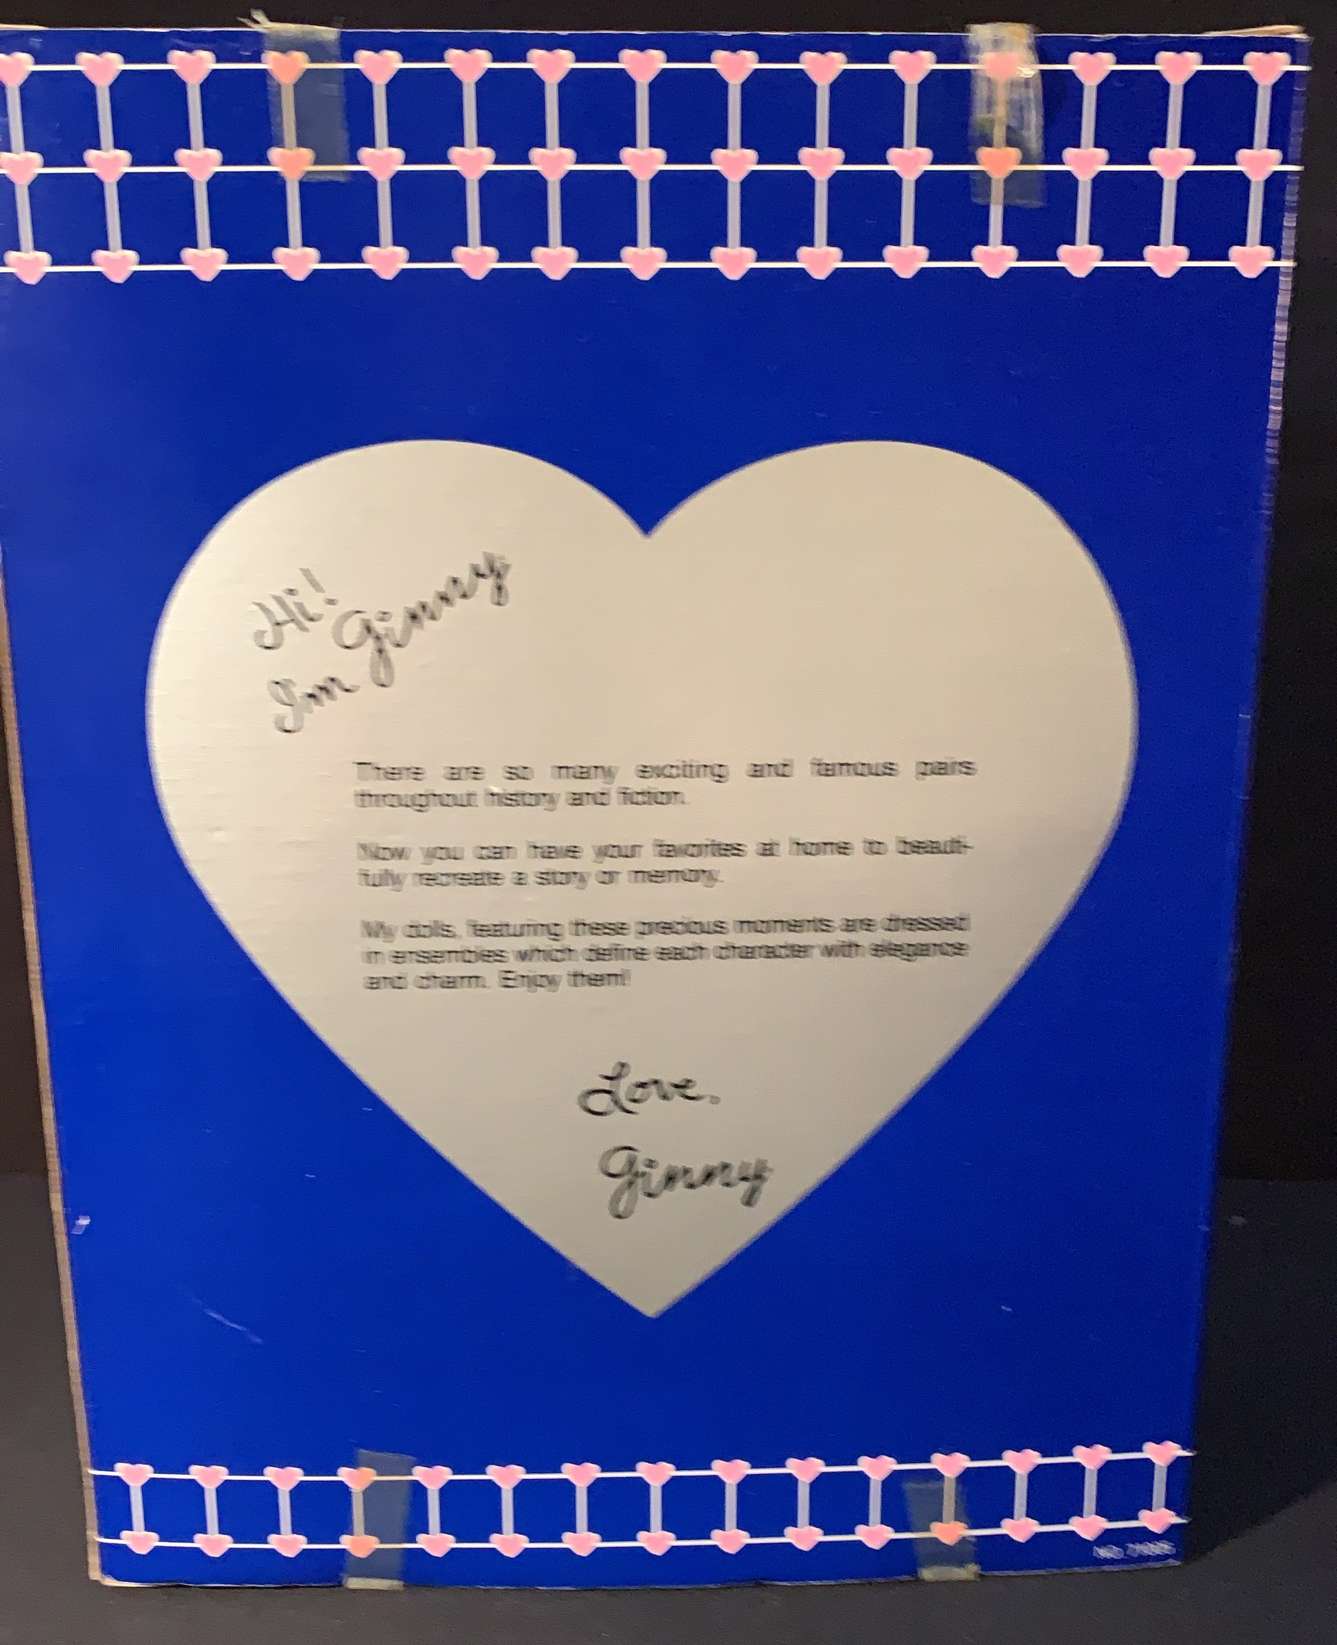 Hi!
I'm Ginny
There are so many exciting and famous pairs
throughout history and fiction.
Now you can have your favorites at home to beauti-
fully recreate a story or memory.
My dolls, featuring these precious moments are dressed
in ensembles which define each character with elegance
and charm. Enjoy them!
Love,
Ginny
NO.